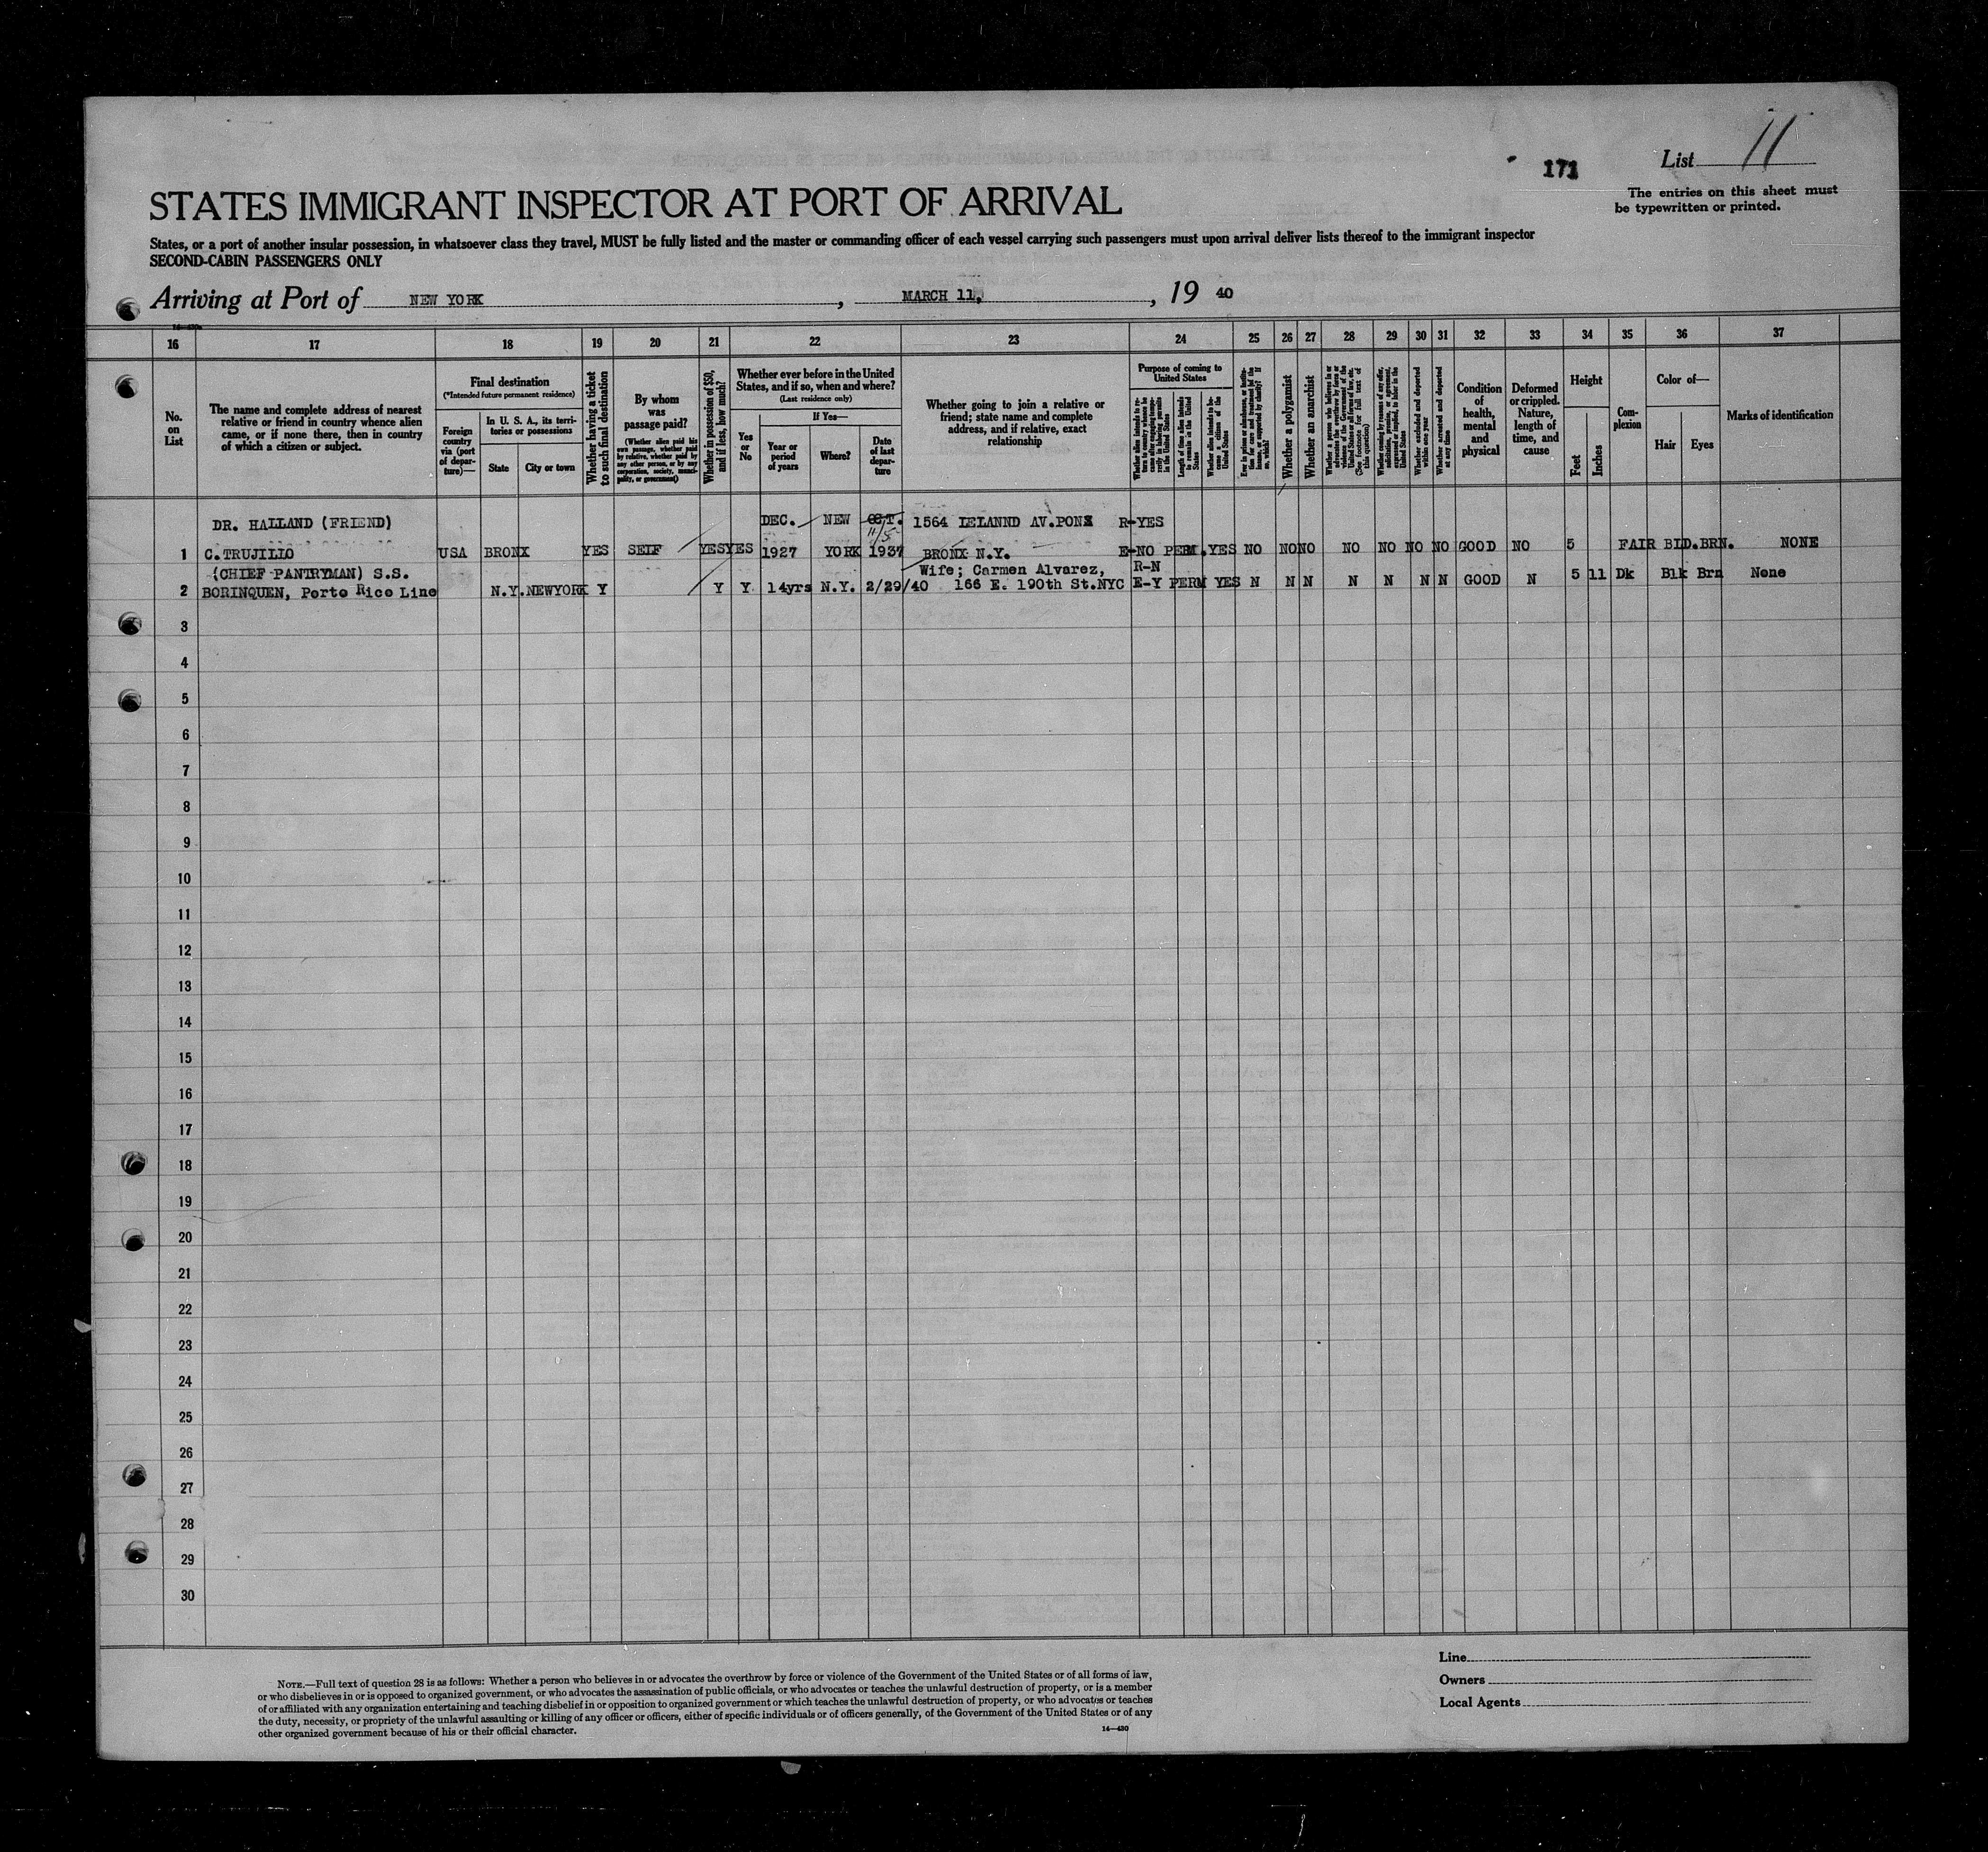 171
List 11
The entries on this sheet must
be typewritten or printed.
STATES IMMIGRANT INSPECTOR AT PORT OF ARRIVAL
States, or a port of another insular possession, in whatsoever class they travel, MUST be fully listed and the master or commanding officer of each vessel carrying such passengers must upon arrival deliver lists thereof to the immigrant inspector
SECOND-CABIN PASSENGERS ONLY
Arriving at Port of NEW YORK, MARCH 11, 19 40
16 17 18 19 20 21 22 23 24 25 26 27 28 29 30 31 32 33 34 35 36 37
No.
on
List
The name and complete address of nearest
relative or friend in country whence alien
came, or if none there, then in country
of which a citizen or subject.
Final destination
(*Intended future permanent residence)
Foreign
country
via (port
of depar-
ture)—
In U. S. A., its terri-
tories or possessions
State
City or town
Whether having a ticket
to such final destination
By whom
was
passage paid?
(Whether alien paid his
own passage, whether paid
by relative, whether paid by
any other person, or by any
corporation, society, munici-
pality, or government)
Whether in possession of $50,
and if less, how much?
Whether ever before in the United
States, and if so, when and where?
(Last residence only)
Yes
or
No
If Yes—
Year or
period
of years
Where?
Date
of last
depar-
ture
Whether going to join a relative or
friend; state name and complete
address, and if relative, exact
relationship
Purpose of coming to
United States
Whether alien intends to re-
turn to country whence he
came after engaging tempo-
rarily in laboring pursuits
in the United States
Length of time alien intends
to remain in the United
States
Whether alien intends to be-
come a citizen of the
United States
Ever in prison or almshouse, or institu-
tion for care and treatment of the
insane, or supported by charity? If
so, which?
Whether a polygamist
Whether an anarchist
Whether a person who believes in or
advocates the overthrow by force or
violence of the Government of the
United States or all forms of law, etc.
(See footnote for full text of
this question)
Whether coming by reason of any offer,
solicitation, promise, or agreement,
expressed or implied, to labor in the
United States
Whether excluded and deported
within one year
Whether arrested and deported
at any time
Condition
of
health,
mental
and
physical
Deformed
or crippled.
Nature,
length of
time, and
cause
Height
Feet
Inches
Com-
plexion
Color of—
Hair
Eyes
Marks of identification
DR. HALLAND (FRIEND) DEC. NEW OCT. 1564 LELANND AV.PONX R-YES
11/5
1 C.TRUJILLO USA BRONX YES SELF YES YES 1927 YORK 1937 BRONX N.Y. E-NO PERM.YES NO NO NO NO NO NO NO GOOD NO 5 FAIR BLD.BRN. NONE
(CHIEF PANTRYMAN) S.S. Wife; Carmen Alvarez, R-N
2 BORINQUEN, Porto Rico Line N.Y. NEWYORK Y Y Y 14yrs N.Y. 2/29/40 166 E. 190th St.NYC E-Y PERM YES N N N N N N N GOOD N 5 11 Dk Blk Brn None
3
4
5
6
7
8
9
10
11
12
13
14
15
16
17
18
19
20
21
22
23
24
25
26
27
28
29
30
Line
Owners
Local Agents
NOTE.—Full text of question 28 is as follows: Whether a person who believes in or advocates the overthrow by force or violence of the Government of the United States or of all forms of law,
or who disbelieves in or is opposed to organized government, or who advocates the assassination of public officials, or who advocates or teaches the unlawful destruction of property, or is a member
of or affiliated with any organization entertaining and teaching disbelief in or opposition to organized government or which teaches the unlawful destruction of property, or who advocates or teaches
the duty, necessity, or propriety of the unlawful assaulting or killing of any officer or officers, either of specific individuals or of officers generally, of the Government of the United States or of any
other organized government because of his or their official character.
14—430